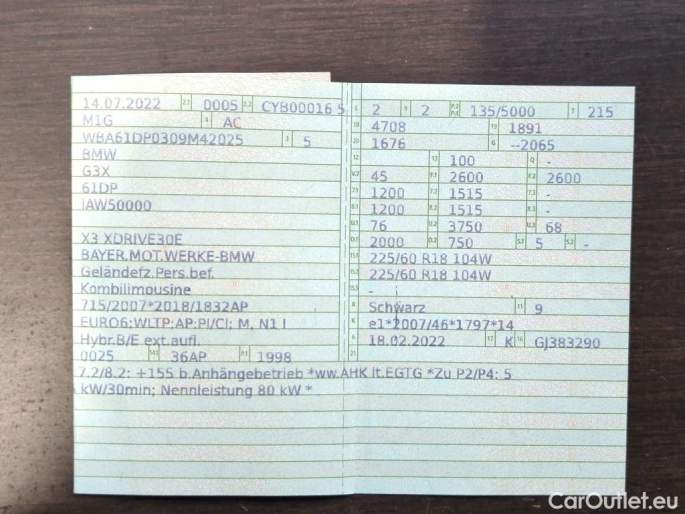 14.07.2022 2.1 0005 2.2 CYB00016 5
M1G 4 AC
WBA61DP0309M42025 3 5
BMW
G3X
61DP
IAW50000
X3 XDRIVE30E
BAYER.MOT.WERKE-BMW
Geländefz.Pers.bef.
Kombilimousine
715/2007*2018/1832AP
EURO6;WLTP;AP:PI/CI; M, N1 I
Hybr.B/E ext.aufl.
0025 36AP 1998
2 2 135/5000 215
4708 1891
1676 --2065
100 -
45 2600 2600
1200 1515 -
1200 1515 -
76 3750 68
2000 750 5 -
225/60 R18 104W
225/60 R18 104W
-
Schwarz 11 9
e1*2007/46*1797*14
18.02.2022 17 K 16 GJ383290
7.2/8.2: +155 b.Anhängebetrieb *ww.AHK lt.EGTG *Zu P2/P4: 5
kW/30min; Nennleistung 80 kW *
CarOutlet.eu